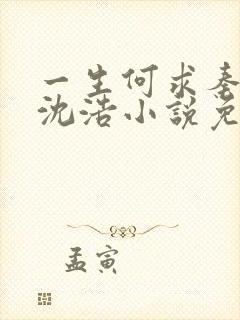 一生何求秦
沈浩小説免
孟寅